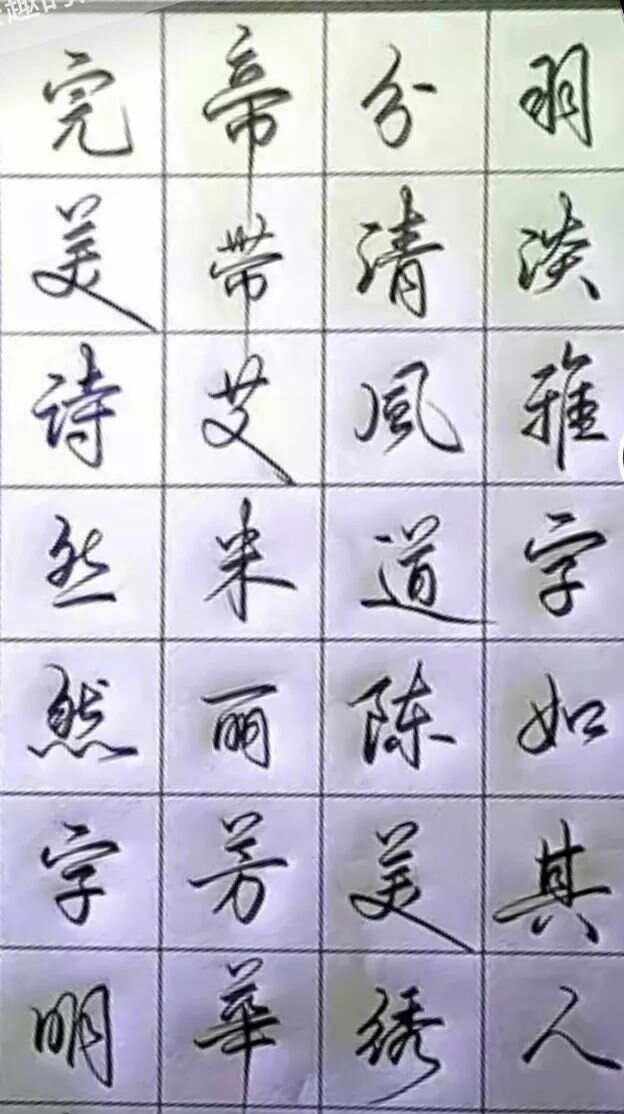 趣
羽淡雅字如其人
分清風道陈美绣
帝带艾米丽芳華
完美诗然字明